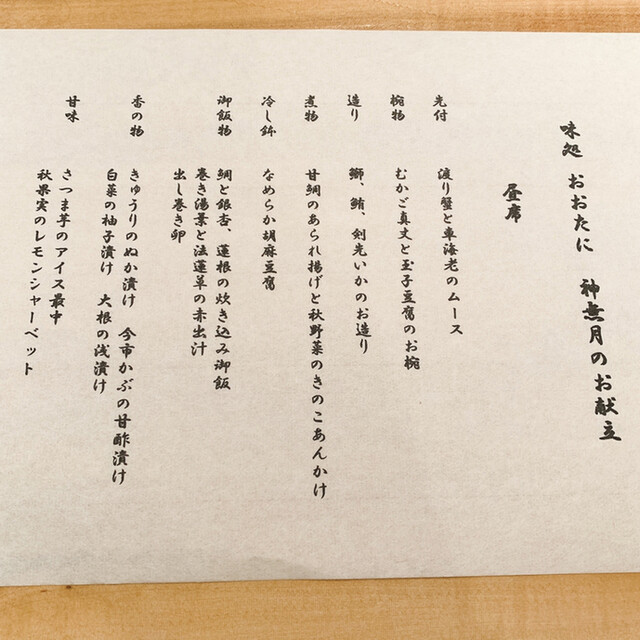 味処 おおたに 神無月のお献立
昼席
先付 渡り蟹と車海老のムース
椀物 むかご真丈と玉子豆腐のお椀
造り 鰤、鮪、剣先いかのお造り
煮物 甘鯛のあられ揚げと秋野菜のきのこあんかけ
冷し鉢 なめらか胡麻豆腐
御飯物 鯛と銀杏、蓮根の炊き込み御飯
巻き湯葉と法蓮草の赤出汁
出し巻き卵
香の物 きゅうりのぬか漬け 今市かぶの甘酢漬け
白菜の柚子漬け 大根の浅漬け
甘味 さつま芋のアイス最中
秋果実のレモンシャーベット